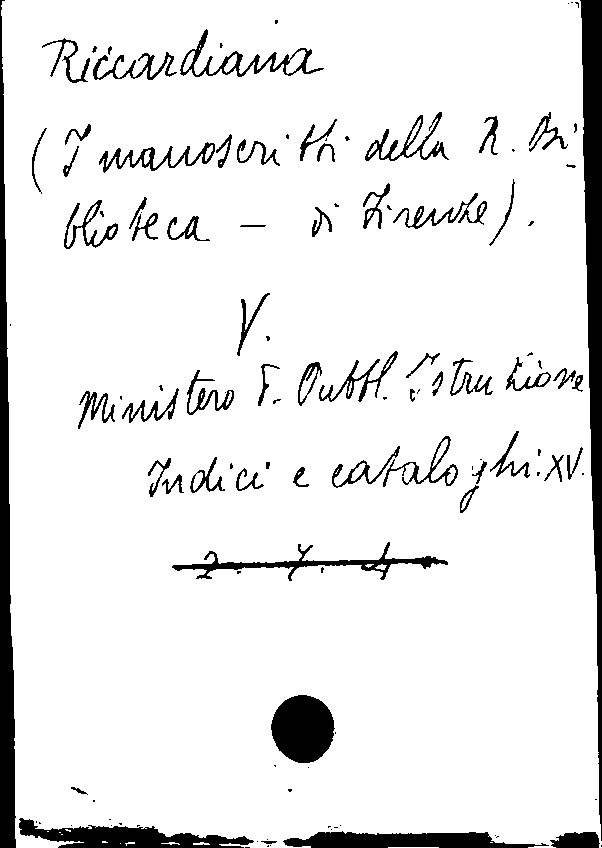 Riccardiana
(I manoscritti della R. Bi-
blioteca — di Firenze).
V.
Ministero P. Pubbl. Istruzione
Indici e cataloghi: XV.
2. 7. 4